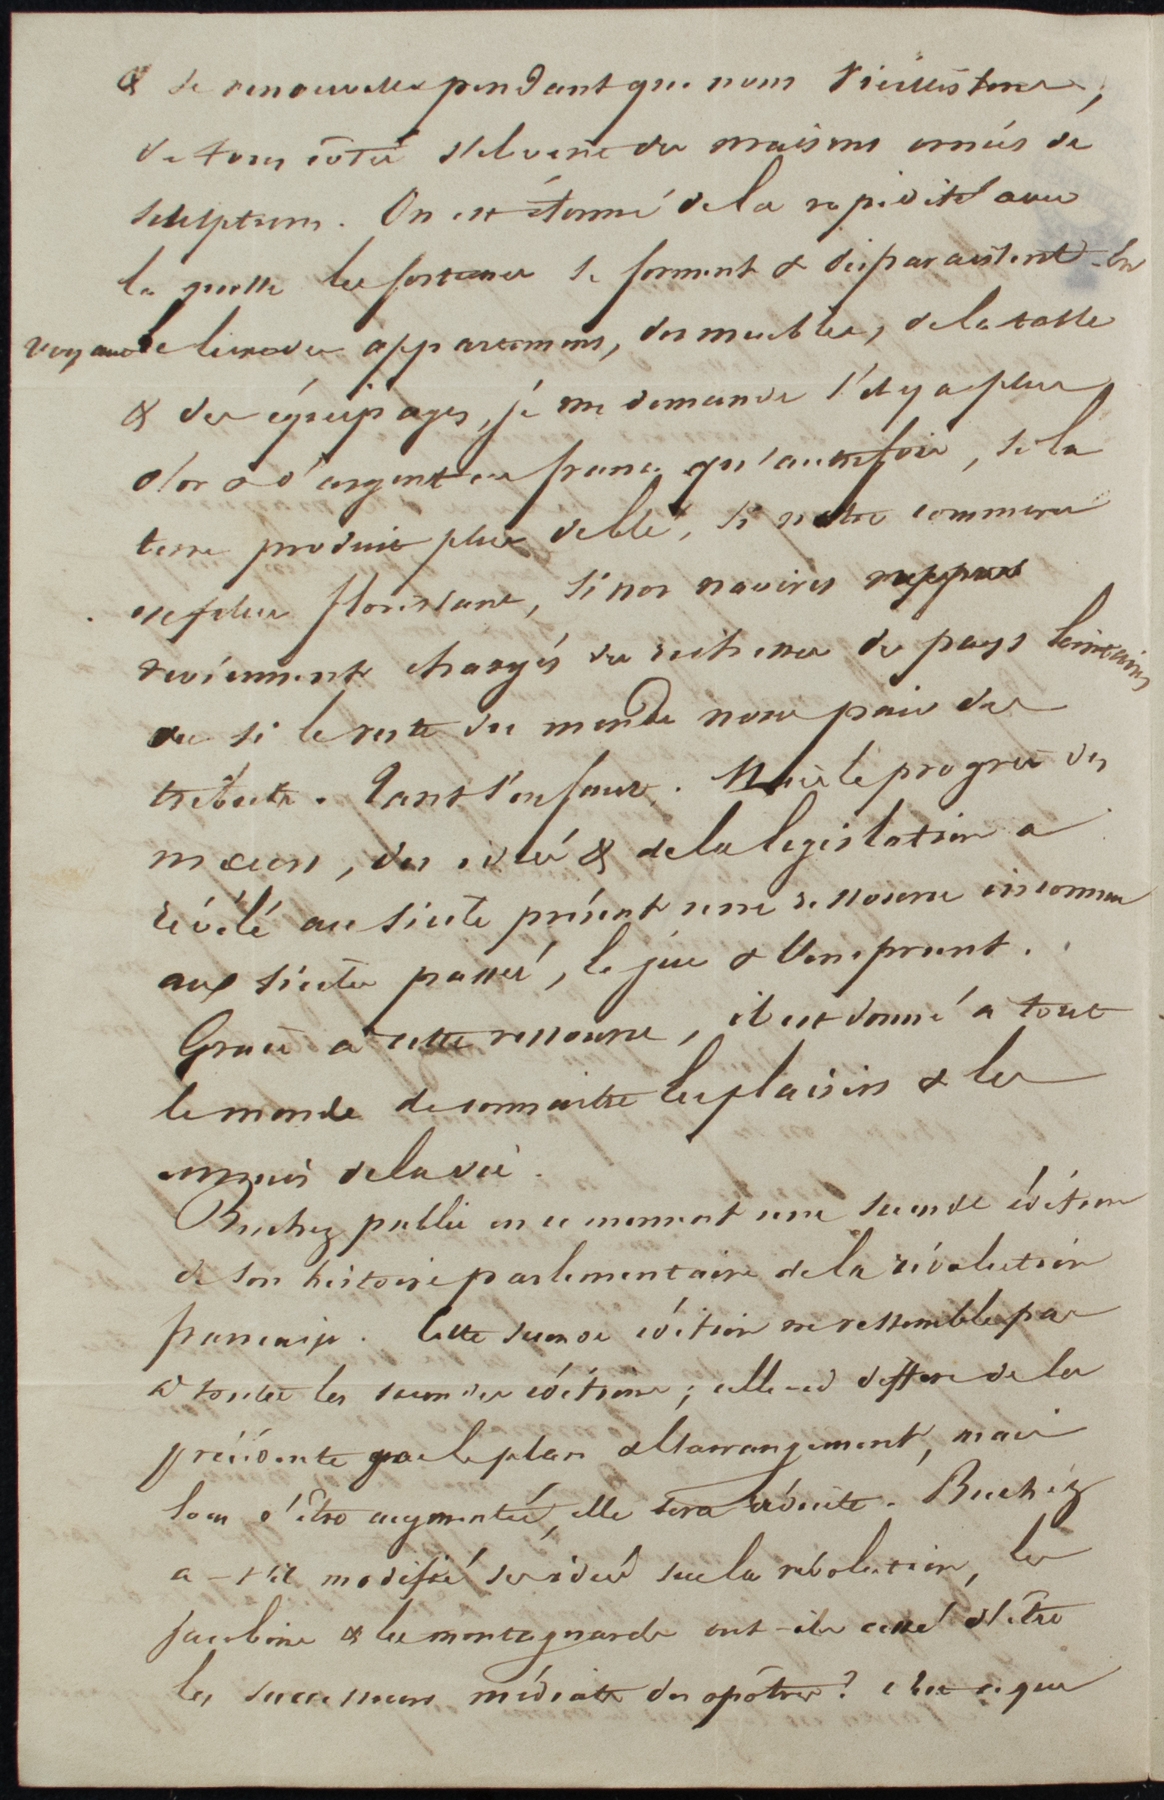 & se renouvelle pendant que nous vieillissons;
de tous côtés s'élèvent des maisons ornées de
sculptures. On est étonné de la rapidité avec
la quelle les fortunes se forment & disparaissent. En
voyant le luxe des appartemens, des meubles, de la table
& des équipages, je me demande s'il y a plus
d'or & d'argent en france qu'autrefois, si la
terre produit plus de blé, si notre commerce
est plus florissant, si nos navires
reviennent chargés des richesses de pays lointains
ou si le reste du monde nous paie des
tributs. Tant s'en faut. Mais le progrès des
mœurs, des idées & de la legislation a
révélé au siècle présent une ressource inconnue
aux siècles passés, le jeu & l'emprunt.
Grace a cette ressource, il est donné a tout
le monde de connaitre les plaisirs & les
ennuis de la vie.
Buchez publie en ce moment une seconde édition
de son histoire parlementaire de la révolution
francaise. Cette seconde édition ne ressemble pas
a toutes les secondes éditions; celle-ci differe de la
précédente par le plan & l'arrangement, mais
loin d'être augmentée, elle sera réduite. Buchez
a-t-il modifié ses idées sur la revolution, les
jacobins & les montagnards ont-ils cessé d'être
les successeurs médiats des apôtres? c'est ce que